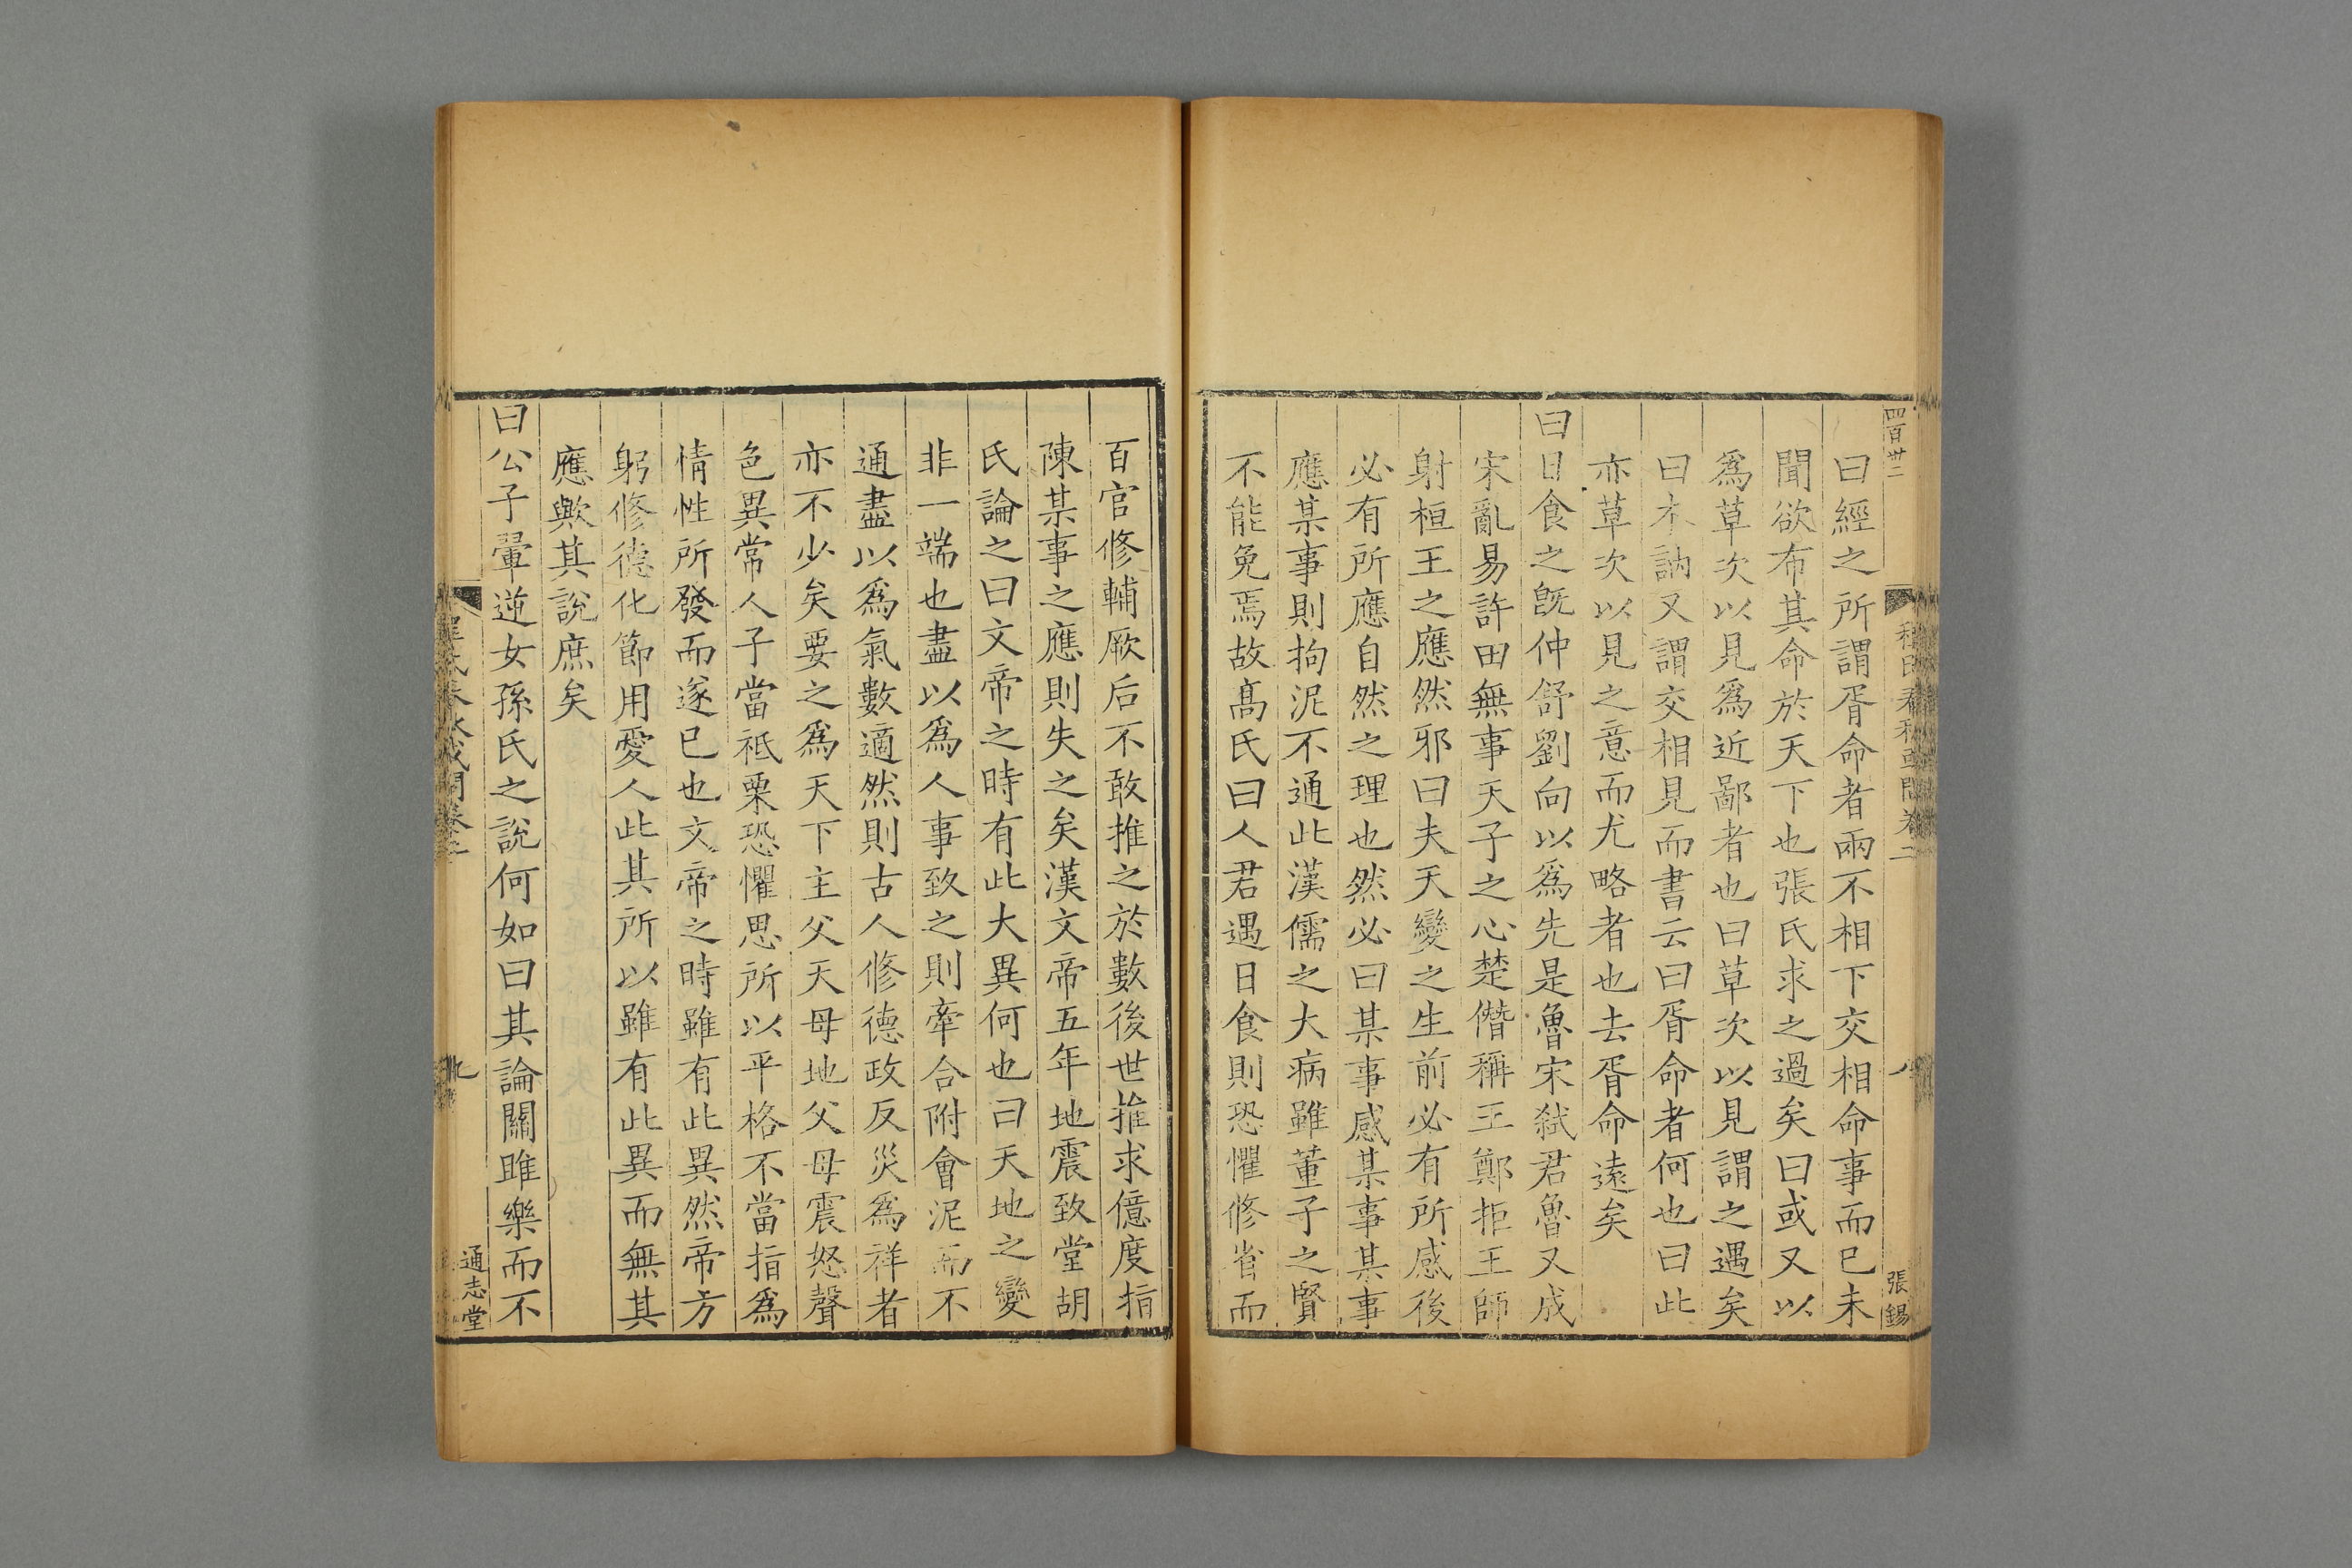 四百卅二
張錫
曰經之所謂胥命者兩不相下交相命事而已未
聞欲布其命於天下也張氏求之過矣曰或又以
爲草次以見爲近鄙者也曰草次以見謂之遇矣
曰木訥又謂交相見而書云曰胥命者何也曰此
亦草次以見之意而尤略者也去胥命遠矣
曰日食之旣仲舒劉向以爲先是魯宋弑君魯又成
宋亂易許田無事天子之心楚僭稱王鄭拒王師
射桓王之應然邪曰夫天變之生前必有所感後
必有所應自然之理也然必曰某事感某事某事
應某事則拘泥不通此漢儒之大病雖董子之賢
不能免焉故高氏曰人君遇日食則恐懼修省而
百官修輔厥后不敢推之於數後世推求億度指
陳某事之應則失之矣漢文帝五年地震致堂胡
氏論之曰文帝之時有此大異何也曰天地之變
非一端也盡以爲人事致之則牽合附會泥而不
通盡以爲氣數適然則古人修德政反災爲祥者
亦不少矣要之爲天下主父天母地父母震怒聲
色異常人子當祗栗恐懼思所以平格不當指爲
情性所發而遂已也文帝之時雖有此異然帝方
躬修德化節用愛人此其所以雖有此異而無其
應歟其說庶矣
曰公子翬逆女孫氏之說何如曰其論關雎樂而不
通志堂